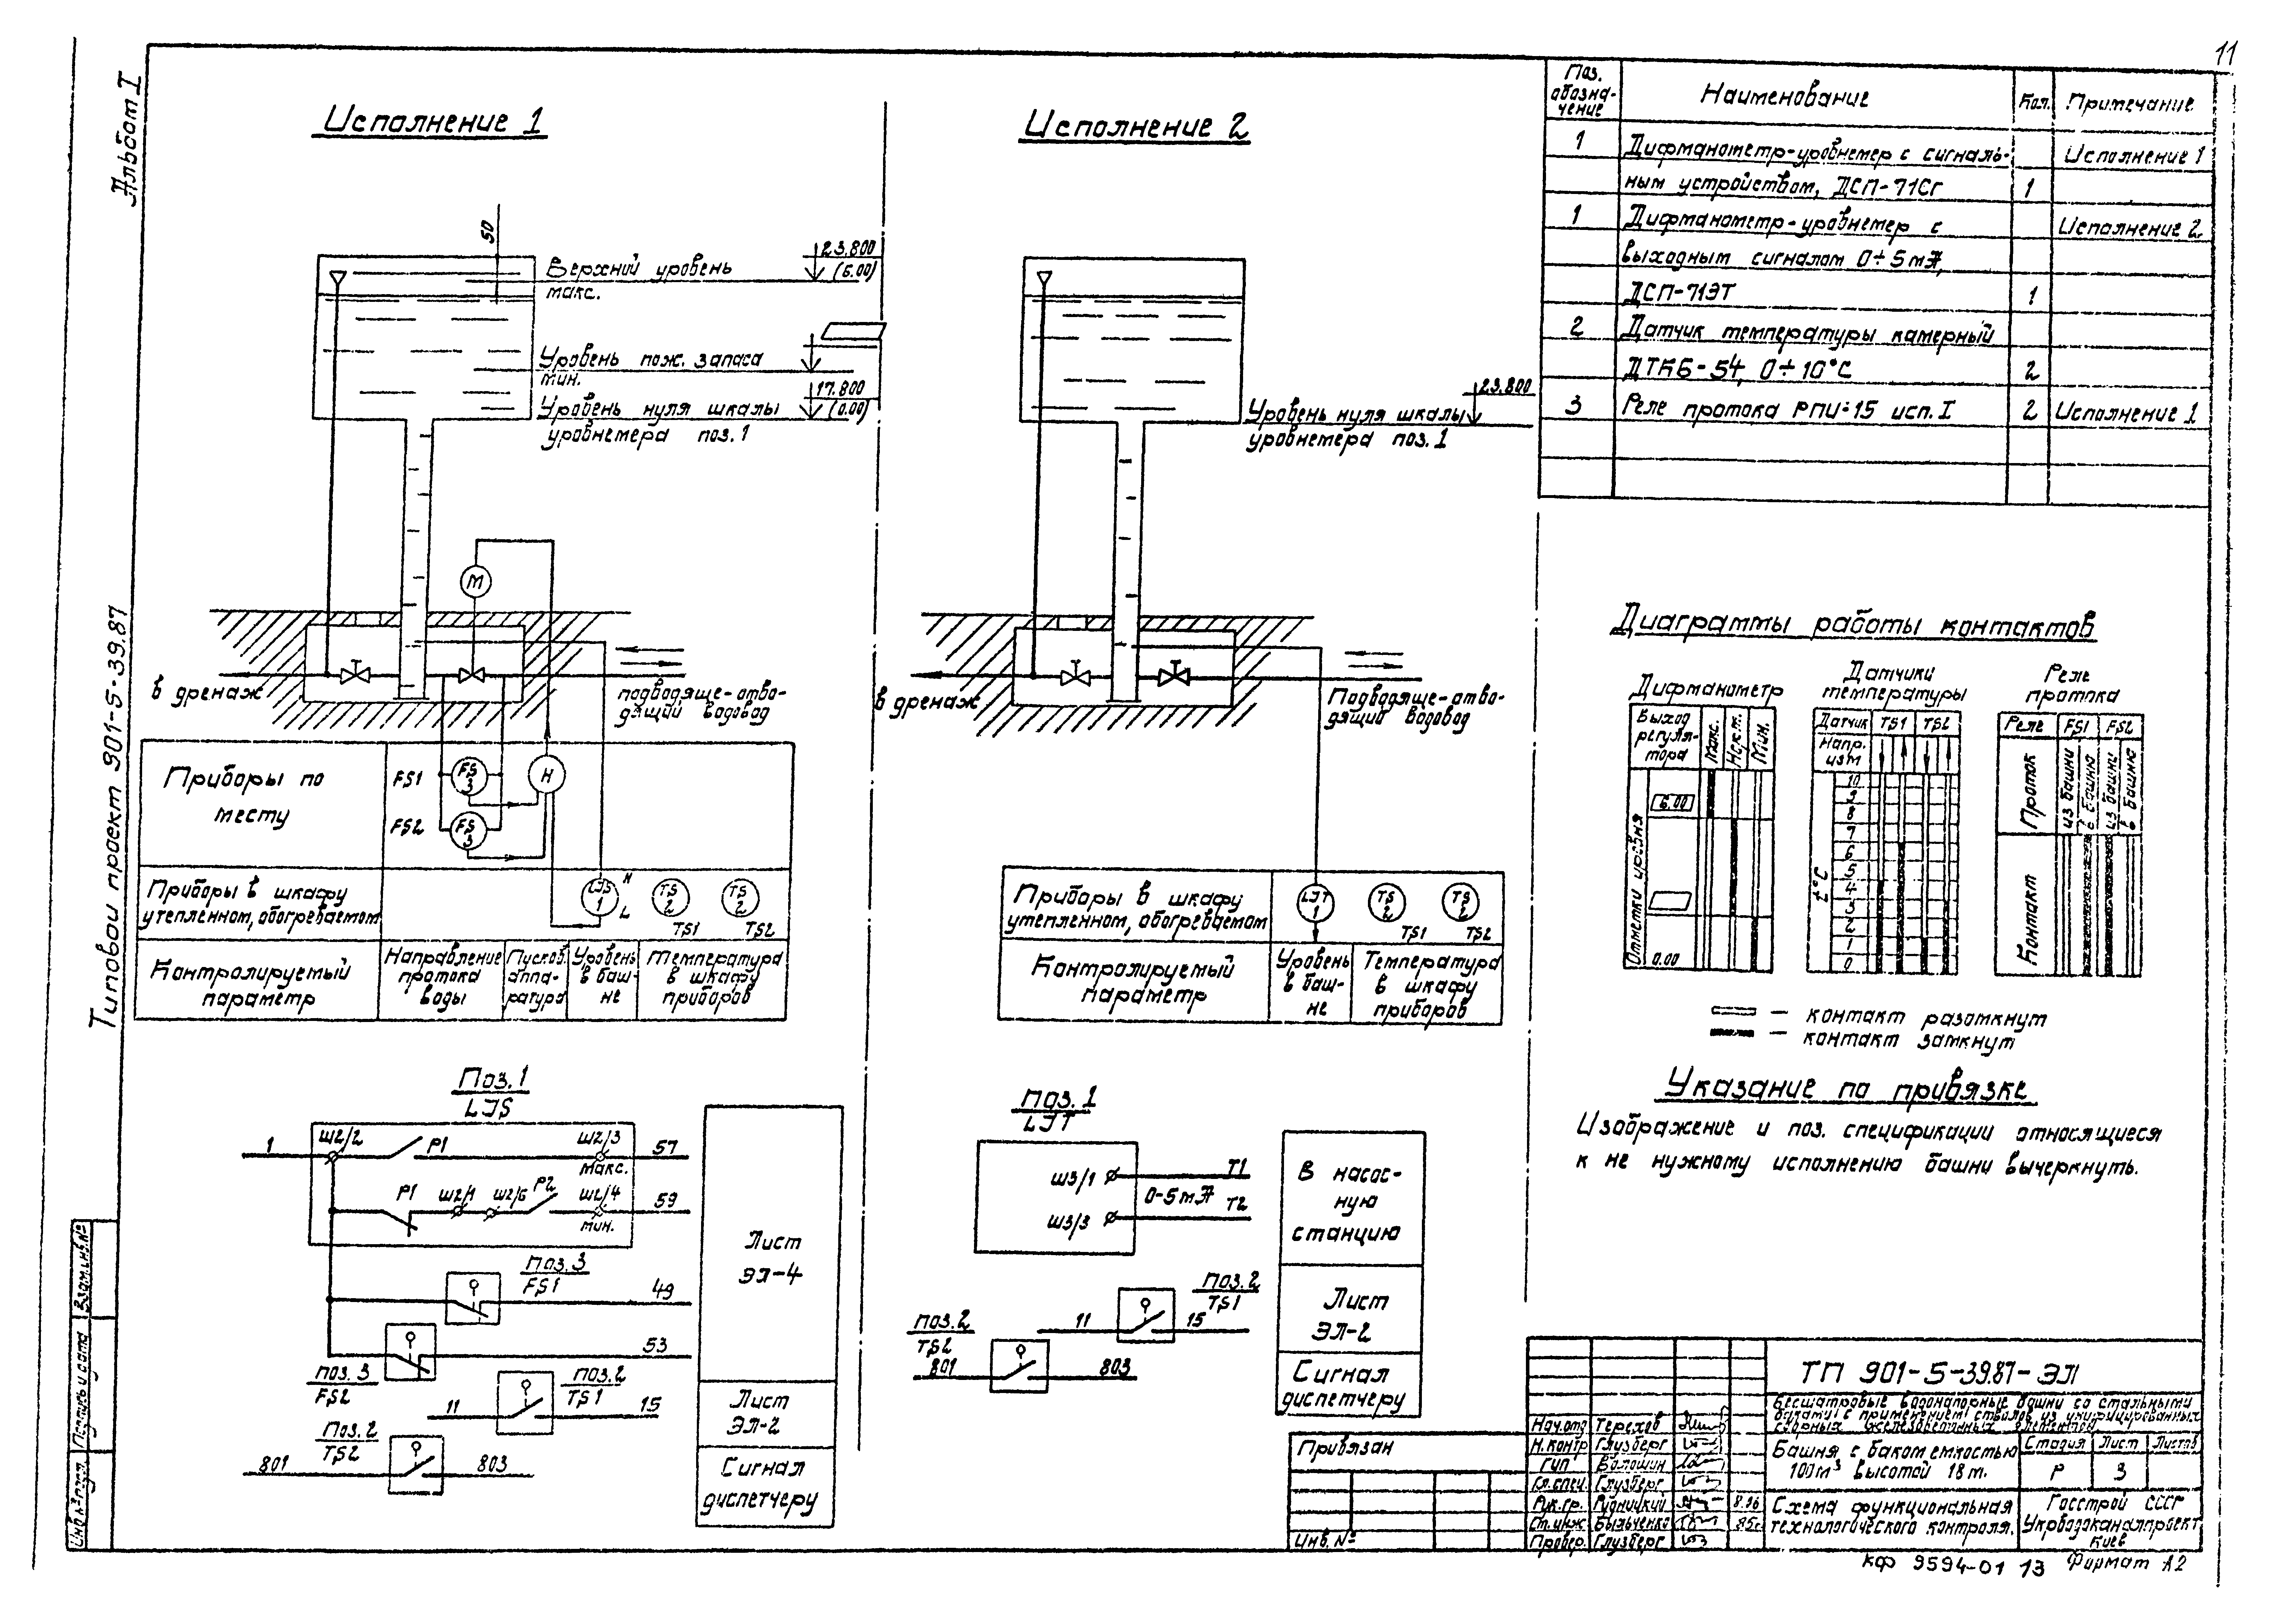 11
Альбом I
Типовой проект 901-5-39.87
Исполнение 1
50
Верхний уровень
макс.
23.800
(6.00)
Уровень пож. запаса
мин.
17.800
(0.00)
Уровень нуля шкалы
уровнемера поз.1
М
в дренаж
подводяще-отво-
дящий водовод
Приборы по
месту
FS1
FS
3
Н
FS2
FS
3
Приборы в шкафу
утепленном, обогреваемом
LJS
1
H
L
TS
2
TS1
TS
2
TS2
Контролируемый
параметр
Направление
протока
воды
Пусков.
аппа-
ратура
Уровень
в баш-
не
Температура
в шкафу
приборов
Поз.1
LJS
1
Ш2/2
Р1
Ш2/3
макс.
57
Р1
Ш2/1
Ш2/6
Р2
Ш2/4
мин.
59
Поз.3
FS1
49
53
поз.3
FS2
поз.2
TS1
11
15
поз.2
TS2
801
803
Лист
ЭЛ-4
Лист
ЭЛ-2
Сигнал
диспетчеру
Исполнение 2
23.800
Уровень нуля шкалы
уровнемера поз.1
в дренаж
Подводяще-отво-
дящий водовод
Приборы в шкафу
утепленном, обогреваемом
LJT
1
TS
2
TS1
TS
2
TS2
Контролируемый
параметр
Уровень
в баш-
не
Температура
в шкафу
приборов
поз.1
LJT
Ш3/1
Т1
0-5мА
Ш3/3
Т2
поз.2
TS1
11
15
поз.2
TS2
801
803
В насос-
ную
станцию
Лист
ЭЛ-2
Сигнал
диспетчеру
Поз.
обозна-
чение
Наименование
Кол.
Примечание
1
Дифманометр-уровнемер с сигналь-
Исполнение 1
ным устройством, ДСП-71Сг
1
1
Дифманометр-уровнемер с
Исполнение 2
выходным сигналом 0÷5мА,
ДСП-71ЭТ
1
2
Датчик температуры камерный
ДТКБ-54, 0÷10°С
2
3
Реле протока РПИ-15 исп. I
2
Исполнение 1
Диаграммы работы контактов
Дифманометр
Выход
регуля-
тора
Макс.
Норм.
Мин.
Отметки уровня
6.00
0.00
Датчики
температуры
Датчик
TS1
TS2
Напр.
изм
t°C
10
9
8
7
6
5
4
3
2
1
0
Реле
протока
Реле
FS1
FS2
Проток
из башни
в башню
из башни
в башню
Контакт
— контакт разомкнут
— контакт замкнут
Указание по привязке
Изображение и поз. спецификации относящиеся
к не нужному исполнению башни вычеркнуть.
Взам.инв.№
Подпись и дата
Инв.№подл.
Привязан
Инв. №
Нач.отд Терехов
Н.контр Глузберг
ГИП Волошин
Гл.спец. Глузберг
Рук.гр. Рудницкий 8.86
Ст.инж Быльченко
Провер. Глузберг
ТП 901-5-39.87-ЭЛ
Бесшатровые водонапорные башни со стальными
баками с применением стволов из унифицированных
сборных железобетонных элементов
Башня с баком емкостью
100м³ высотой 18м.
Стадия
Лист
Листов
Р
3
Схема функциональная
технологического контроля.
Госстрой СССР
Укрводоканалпроект
Киев
КФ 9594-01 13
Формат А2